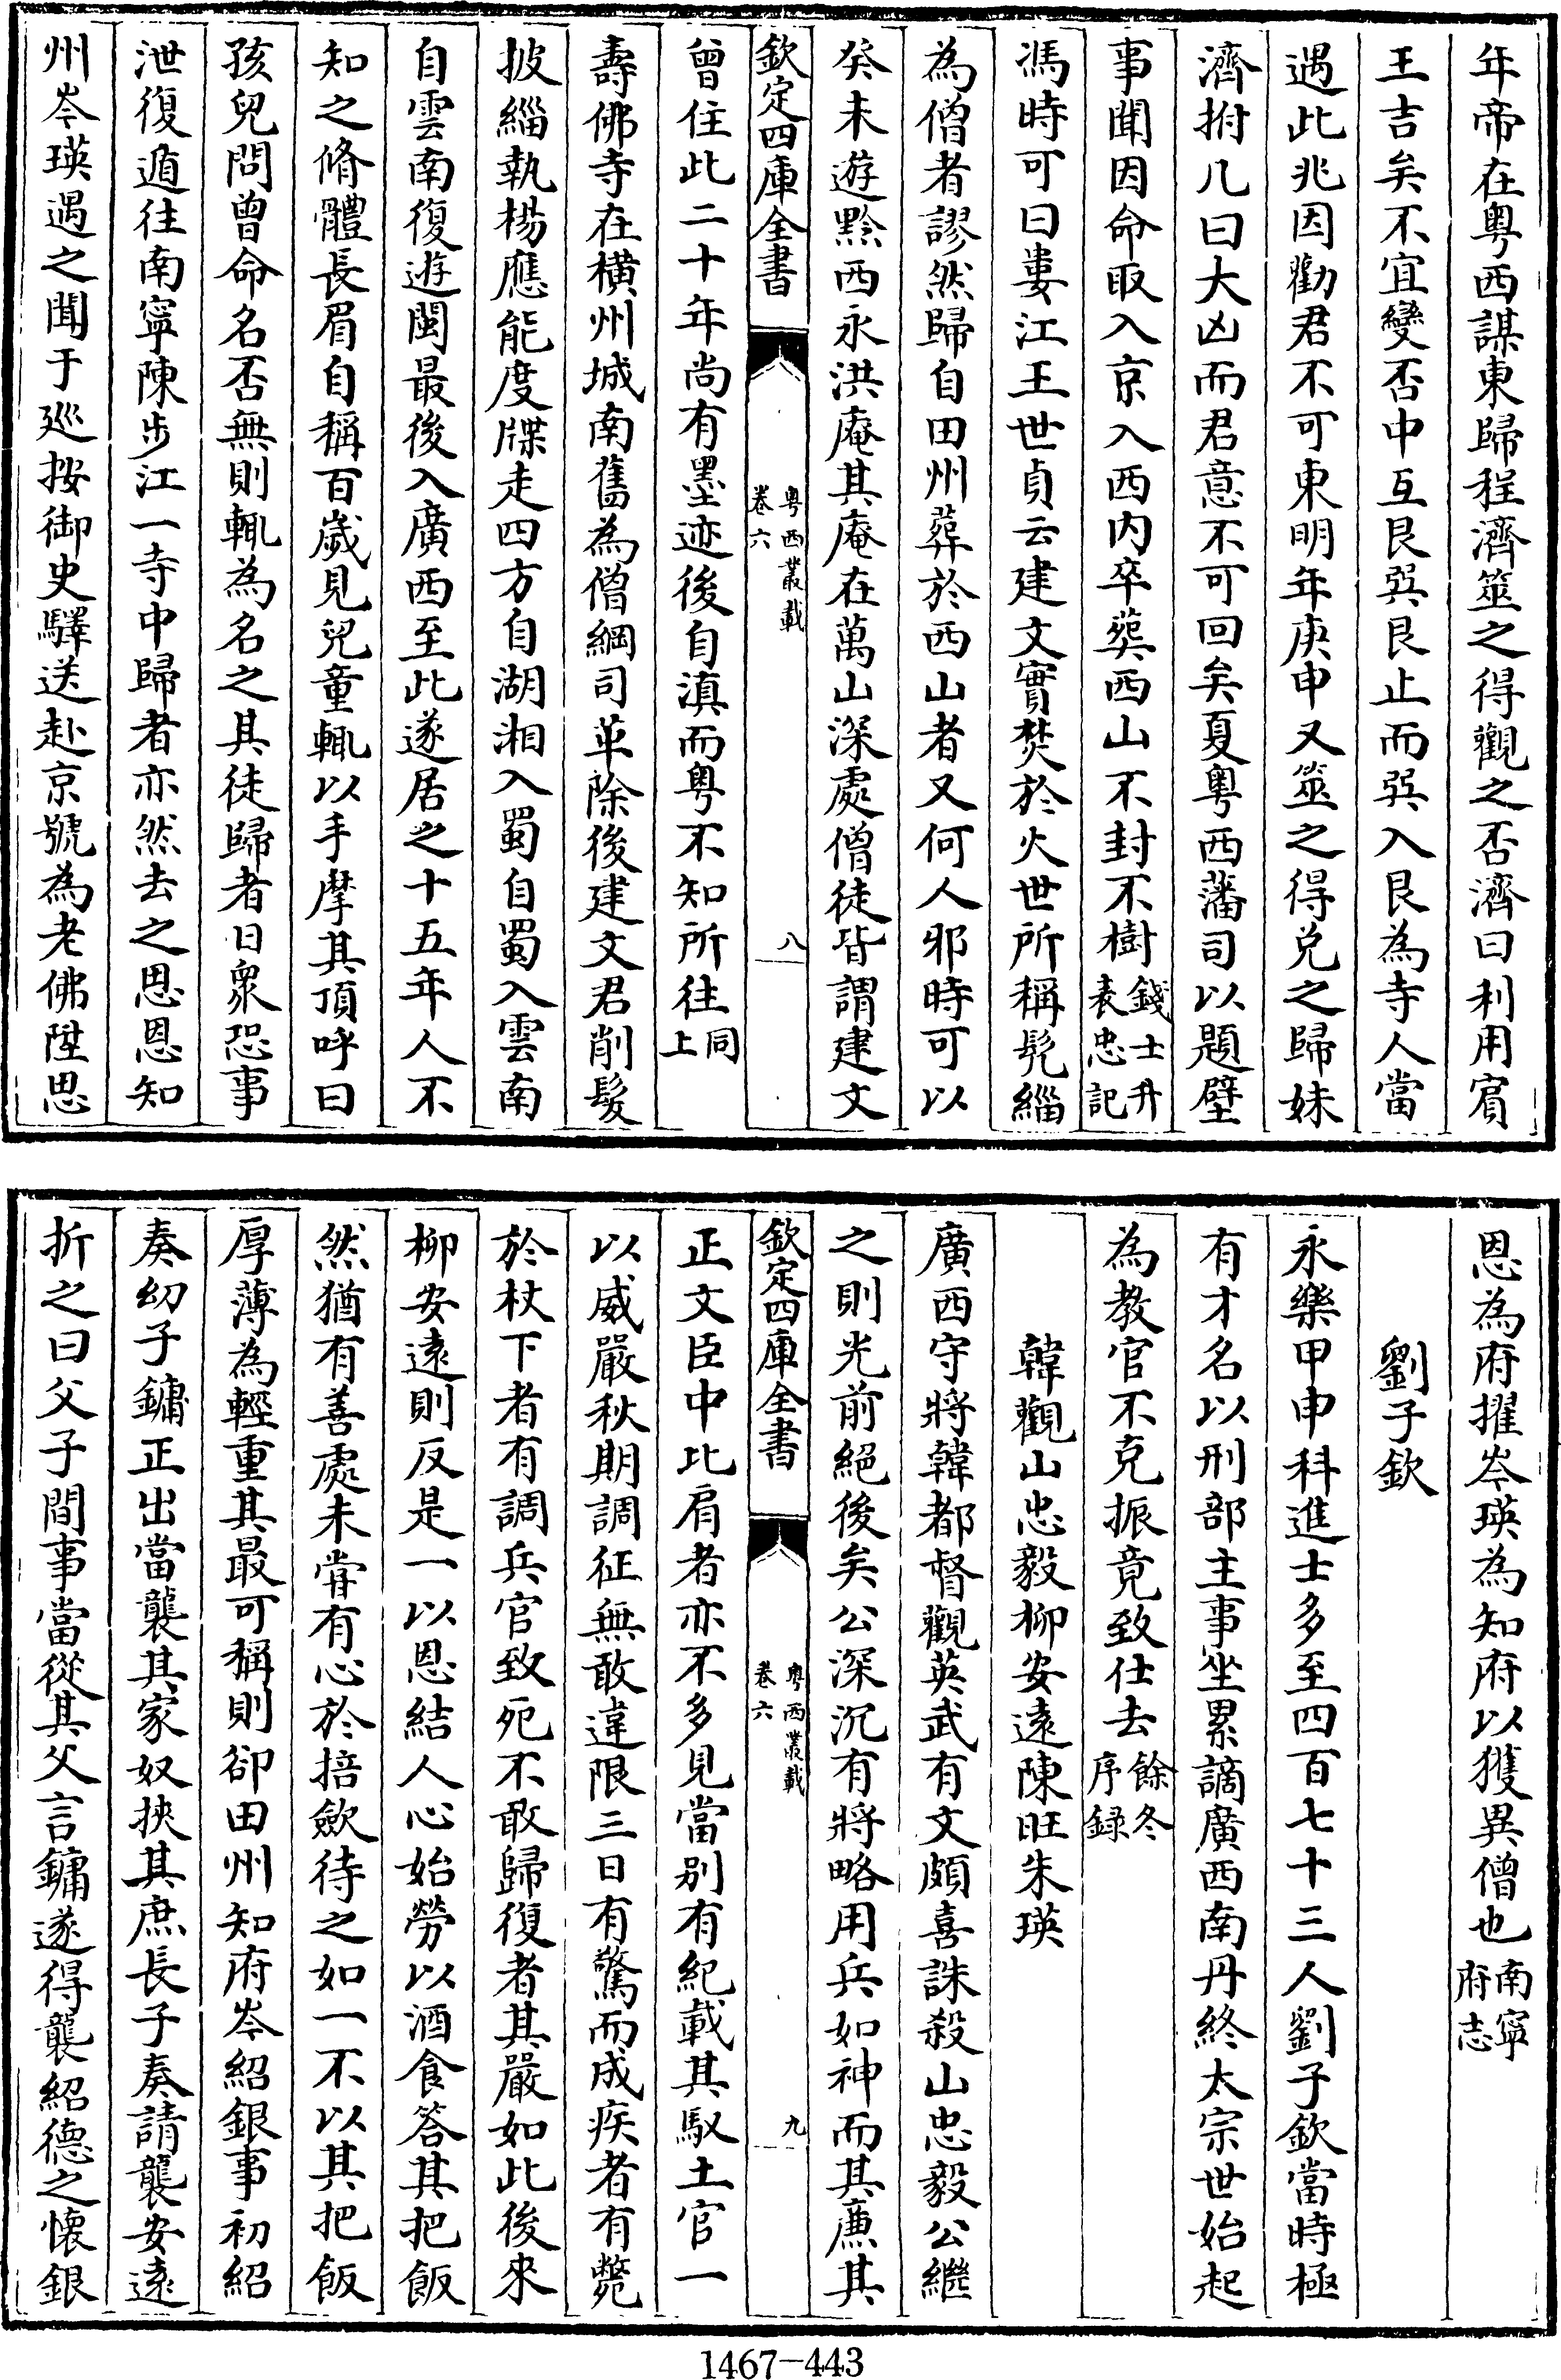 年帝在粵西謀東歸程濟筮之得觀之否濟曰利用賓
王吉矣不宜變否中互艮巽艮止而巽入艮為寺人當
遇此兆因勸君不可東明年庚申又筮之得兌之歸妹
濟拊几曰大凶而君意不可回矣夏粵西藩司以題壁
事聞因命取入京入西内卒葬西山不封不樹錢士升
表忠記
馮時可曰婁江王世貞云建文實焚於火世所稱髠緇
為僧者謬然歸自田州葬於西山者又何人邪時可以
癸未遊黔西永洪庵其庵在萬山深處僧徒皆謂建文
欽定四庫全書
粵西叢載
卷六
八
曾住此二十年尚有墨迹後自滇而粵不知所往同
上
壽佛寺在橫州城南舊為僧綱司革除後建文君削髮
披緇執楊應能度牒走四方自湖湘入蜀自蜀入雲南
自雲南復遊閩最後入廣西至此遂居之十五年人不
知之脩體長眉自稱百歲見兒童輒以手摩其頂呼曰
孩兒問曾命名否無則輒為名之其徒歸者日衆恐事
泄復遁往南寧陳步江一寺中歸者亦然去之思恩知
州岑瑛遇之聞于巡按御史驛送赴京號為老佛陞思
恩為府擢岑瑛為知府以獲異僧也南寧
府志
劉子欽
永樂甲申科進士多至四百七十三人劉子欽當時極
有才名以刑部主事坐累謫廣西南丹終太宗世始起
為教官不克振竟致仕去餘冬
序録
韓觀山忠毅柳安遠陳旺朱瑛
廣西守將韓都督觀英武有文頗喜誅殺山忠毅公繼
之則光前絕後矣公深沉有將略用兵如神而其廉其
欽定四庫全書
粵西叢載
卷六
九
正文臣中比肩者亦不多見當别有紀載其馭土官一
以威嚴秋期調征無敢違限三日有驚而成疾者有斃
於杖下者有調兵官致死不敢歸復者其嚴如此後來
柳安遠則反是一以恩結人心始勞以酒食答其把飯
然猶有善處未甞有心於掊歛待之如一不以其把飯
厚薄為輕重其最可稱則卻田州知府岑紹銀事初紹
奏幼子鏞正出當襲其家奴挾其庶長子奏請襲安遠
折之曰父子間事當從其父言鏞遂得襲紹德之懷銀
1467-443